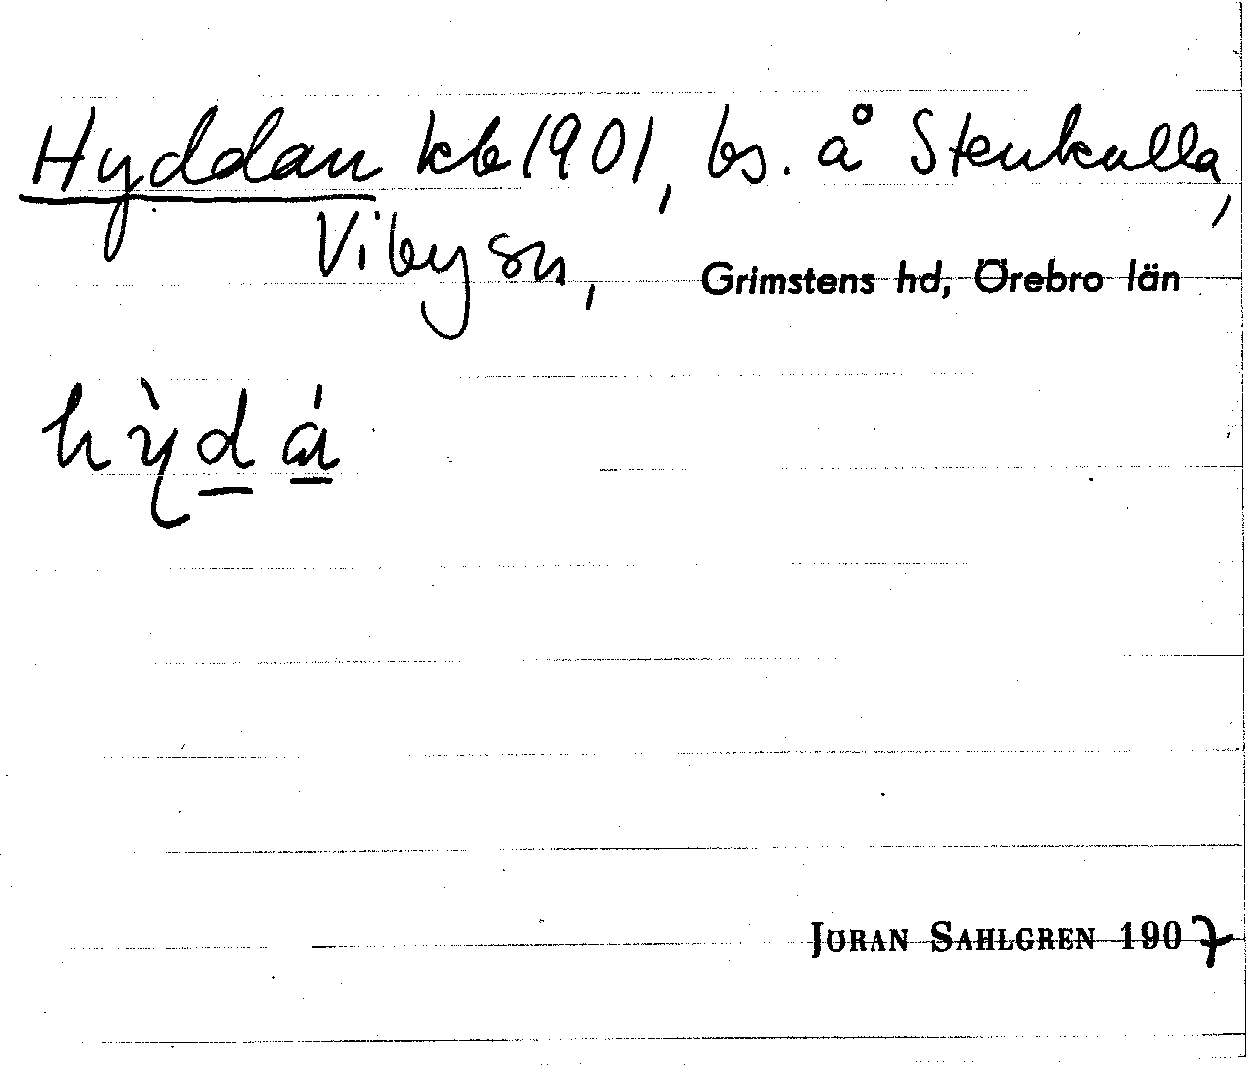 Hyddan kb 1901, bs. å Stenkulla,
Viby sn, Grimstens hd, Örebro län
hỳdá
JÖRAN SAHLGREN 1907